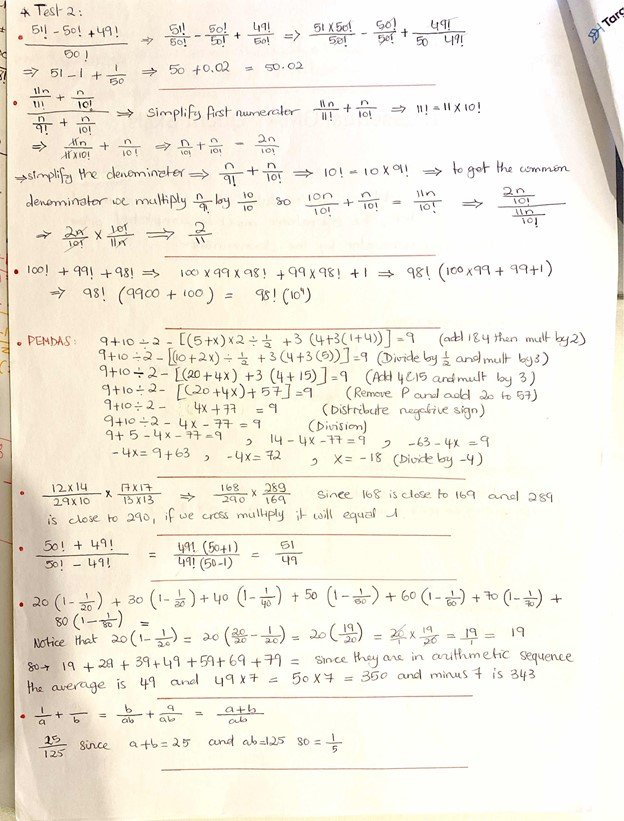 * Test 2:
• (51! - 50! + 49!) / 50! ⇒ 51!/50! - 50!/50! + 49!/50! ⇒ (51 x 50!)/50! - 50!/50! + 49!/(50 49!)
⇒ 51 - 1 + 1/50 ⇒ 50 + 0.02 = 50.02
• (11n/11! + n/10!) / (n/9! + n/10!) ⇒ simplify first numerator 11n/11! + n/10! ⇒ 11! = 11 x 10!
⇒ 11n/(11 x 10!) + n/10! ⇒ n/10! + n/10! = 2n/10!
⇒ simplify the denominator ⇒ n/9! + n/10! ⇒ 10! = 10 x 9! ⇒ to get the common
denominator we multiply n/9! by 10/10 so 10n/10! + n/10! = 11n/10! ⇒ (2n/10!) / (11n/10!)
⇒ 2n/10! x 10!/11n ⇒ 2/11
• 100! + 99! + 98! ⇒ 100 x 99 x 98! + 99 x 98! + 1 ⇒ 98! (100 x 99 + 99 + 1)
⇒ 98! (9900 + 100) = 98! (10⁴)
• PEMDAS: 9 + 10 ÷ 2 - [(5+x) x 2 ÷ 1/2 + 3 (4 + 3(1+4))] = 9 (add 1&4 then mult by 2)
9 + 10 ÷ 2 - [(10+2x) ÷ 1/2 + 3 (4 + 3(5))] = 9 (Divide by 1/2 and mult by 3)
9 + 10 ÷ 2 - [(20+4x) + 3 (4+15)] = 9 (Add 4&15 and mult by 3)
9 + 10 ÷ 2 - [(20+4x) + 57] = 9 (Remove P and add 20 to 57)
9 + 10 ÷ 2 - 4x + 77 = 9 (Distribute negative sign)
9 + 10 ÷ 2 - 4x - 77 = 9 (Division)
9 + 5 - 4x - 77 = 9 , 14 - 4x - 77 = 9 , -63 - 4x = 9
-4x = 9 + 63 , -4x = 72 , x = -18 (Divide by -4)
• (12 x 14)/(29 x 10) x (17 x 17)/(13 x 13) ⇒ 168/290 x 289/169 Since 168 is close to 169 and 289
is close to 290, if we cross multiply it will equal 1.
• (50! + 49!) / (50! - 49!) = 49! (50+1) / 49! (50-1) = 51/49
• 20 (1 - 1/20) + 30 (1 - 1/30) + 40 (1 - 1/40) + 50 (1 - 1/50) + 60 (1 - 1/60) + 70 (1 - 1/70) +
80 (1 - 1/80) =
Notice that 20 (1 - 1/20) = 20 (20/20 - 1/20) = 20 (19/20) = 20/1 x 19/20 = 19/1 = 19
so → 19 + 29 + 39 + 49 + 59 + 69 + 79 = since they are in arithmetic sequence
the average is 49 and 49 x 7 = 50 x 7 = 350 and minus 7 is 343
• 1/a + 1/b = b/ab + a/ab = (a+b)/ab
25/125 since a+b = 25 and ab = 125 so = 1/5